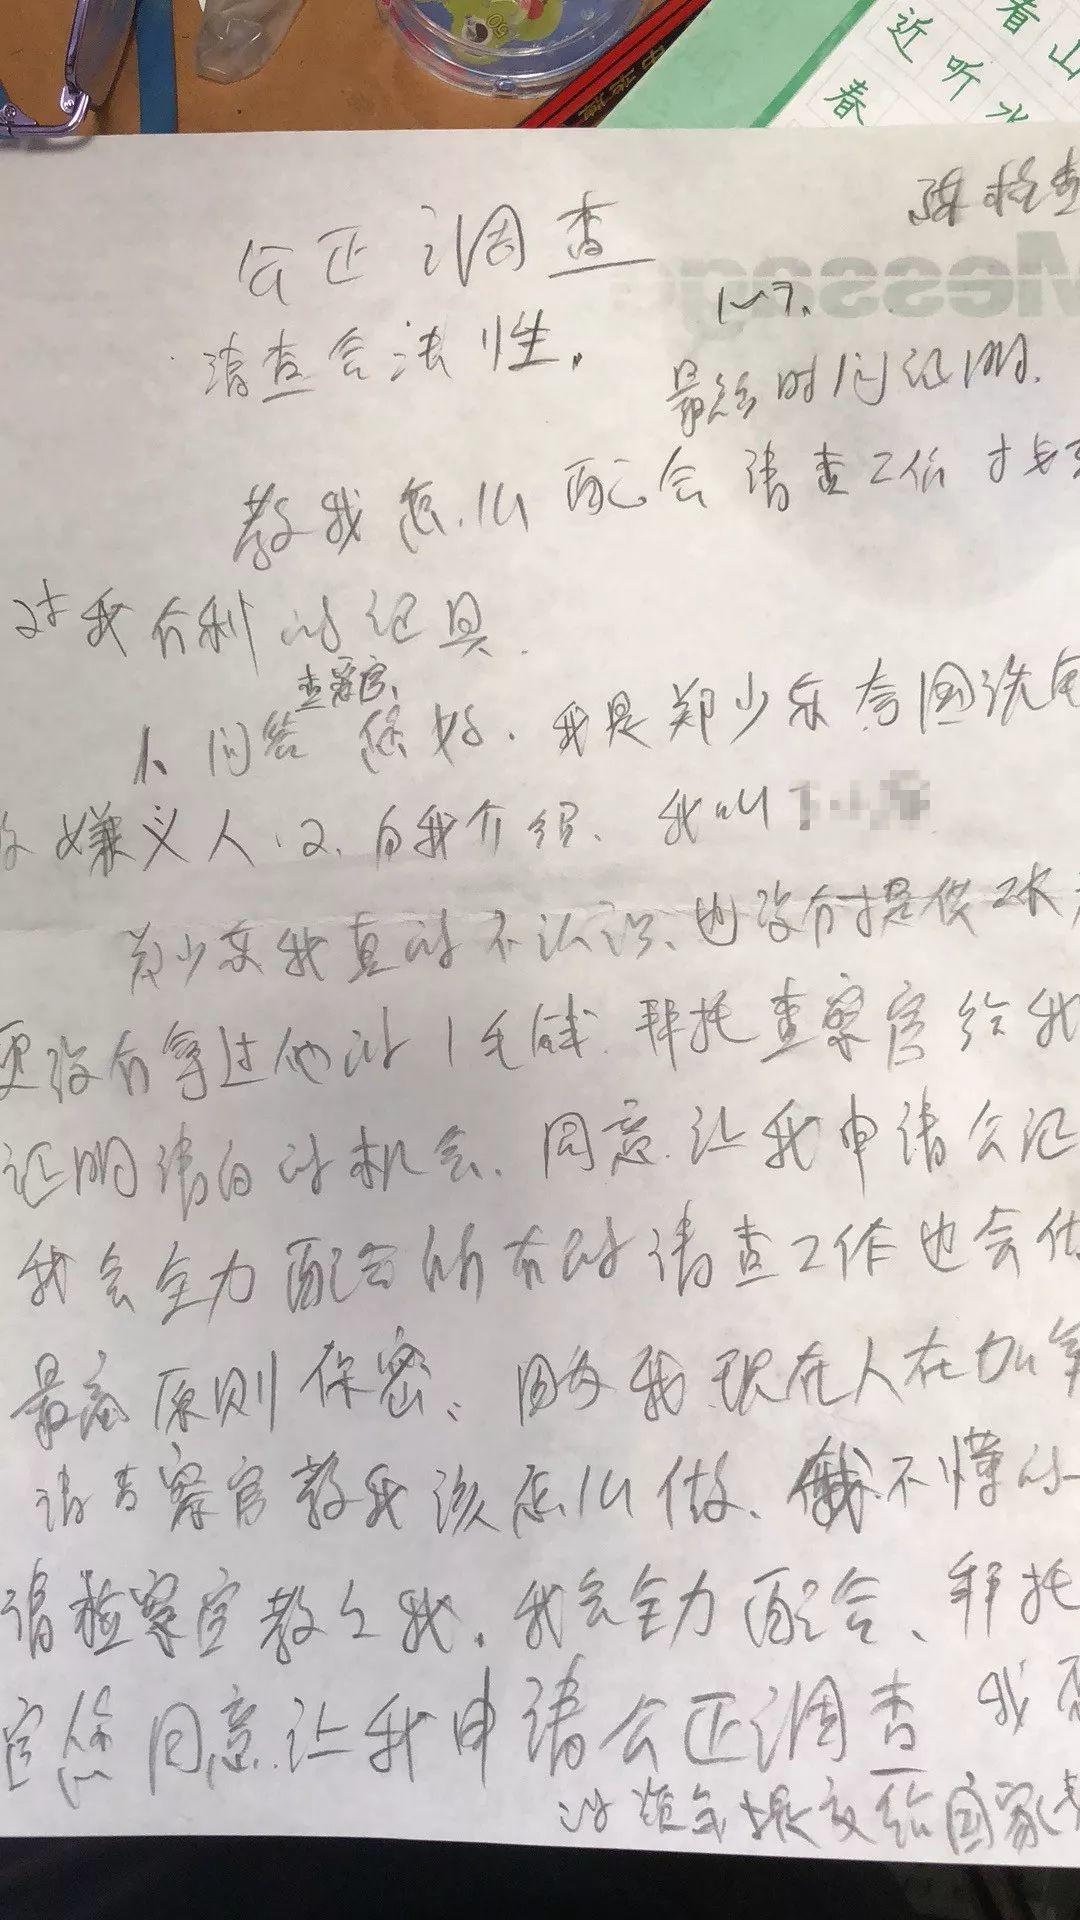 看山
近听水
春
中华牌
Message
陈检查
公正调查
1~7.
请查合法性,
最给时间证明.
教我怎么配合请查工作 才
对我有利的证具.
查察官、
1、问答 您好、我是郑少东夸国洗
嫌义人、2、自我介绍、我叫
郑少东我真的不认识、也没有提供
更没有拿过他的1毛钱. 拜托查察官给我
证明请白的机会、同意让我申请公证
我会全力配合所有的请查工作也会
最高原则保密、因为我现在人在加拿
请查察官教我该怎么做、我不懂的
请检察官教么我. 我会全力配合、拜托
官您同意让我申请公正调查 我
的 提交给国家